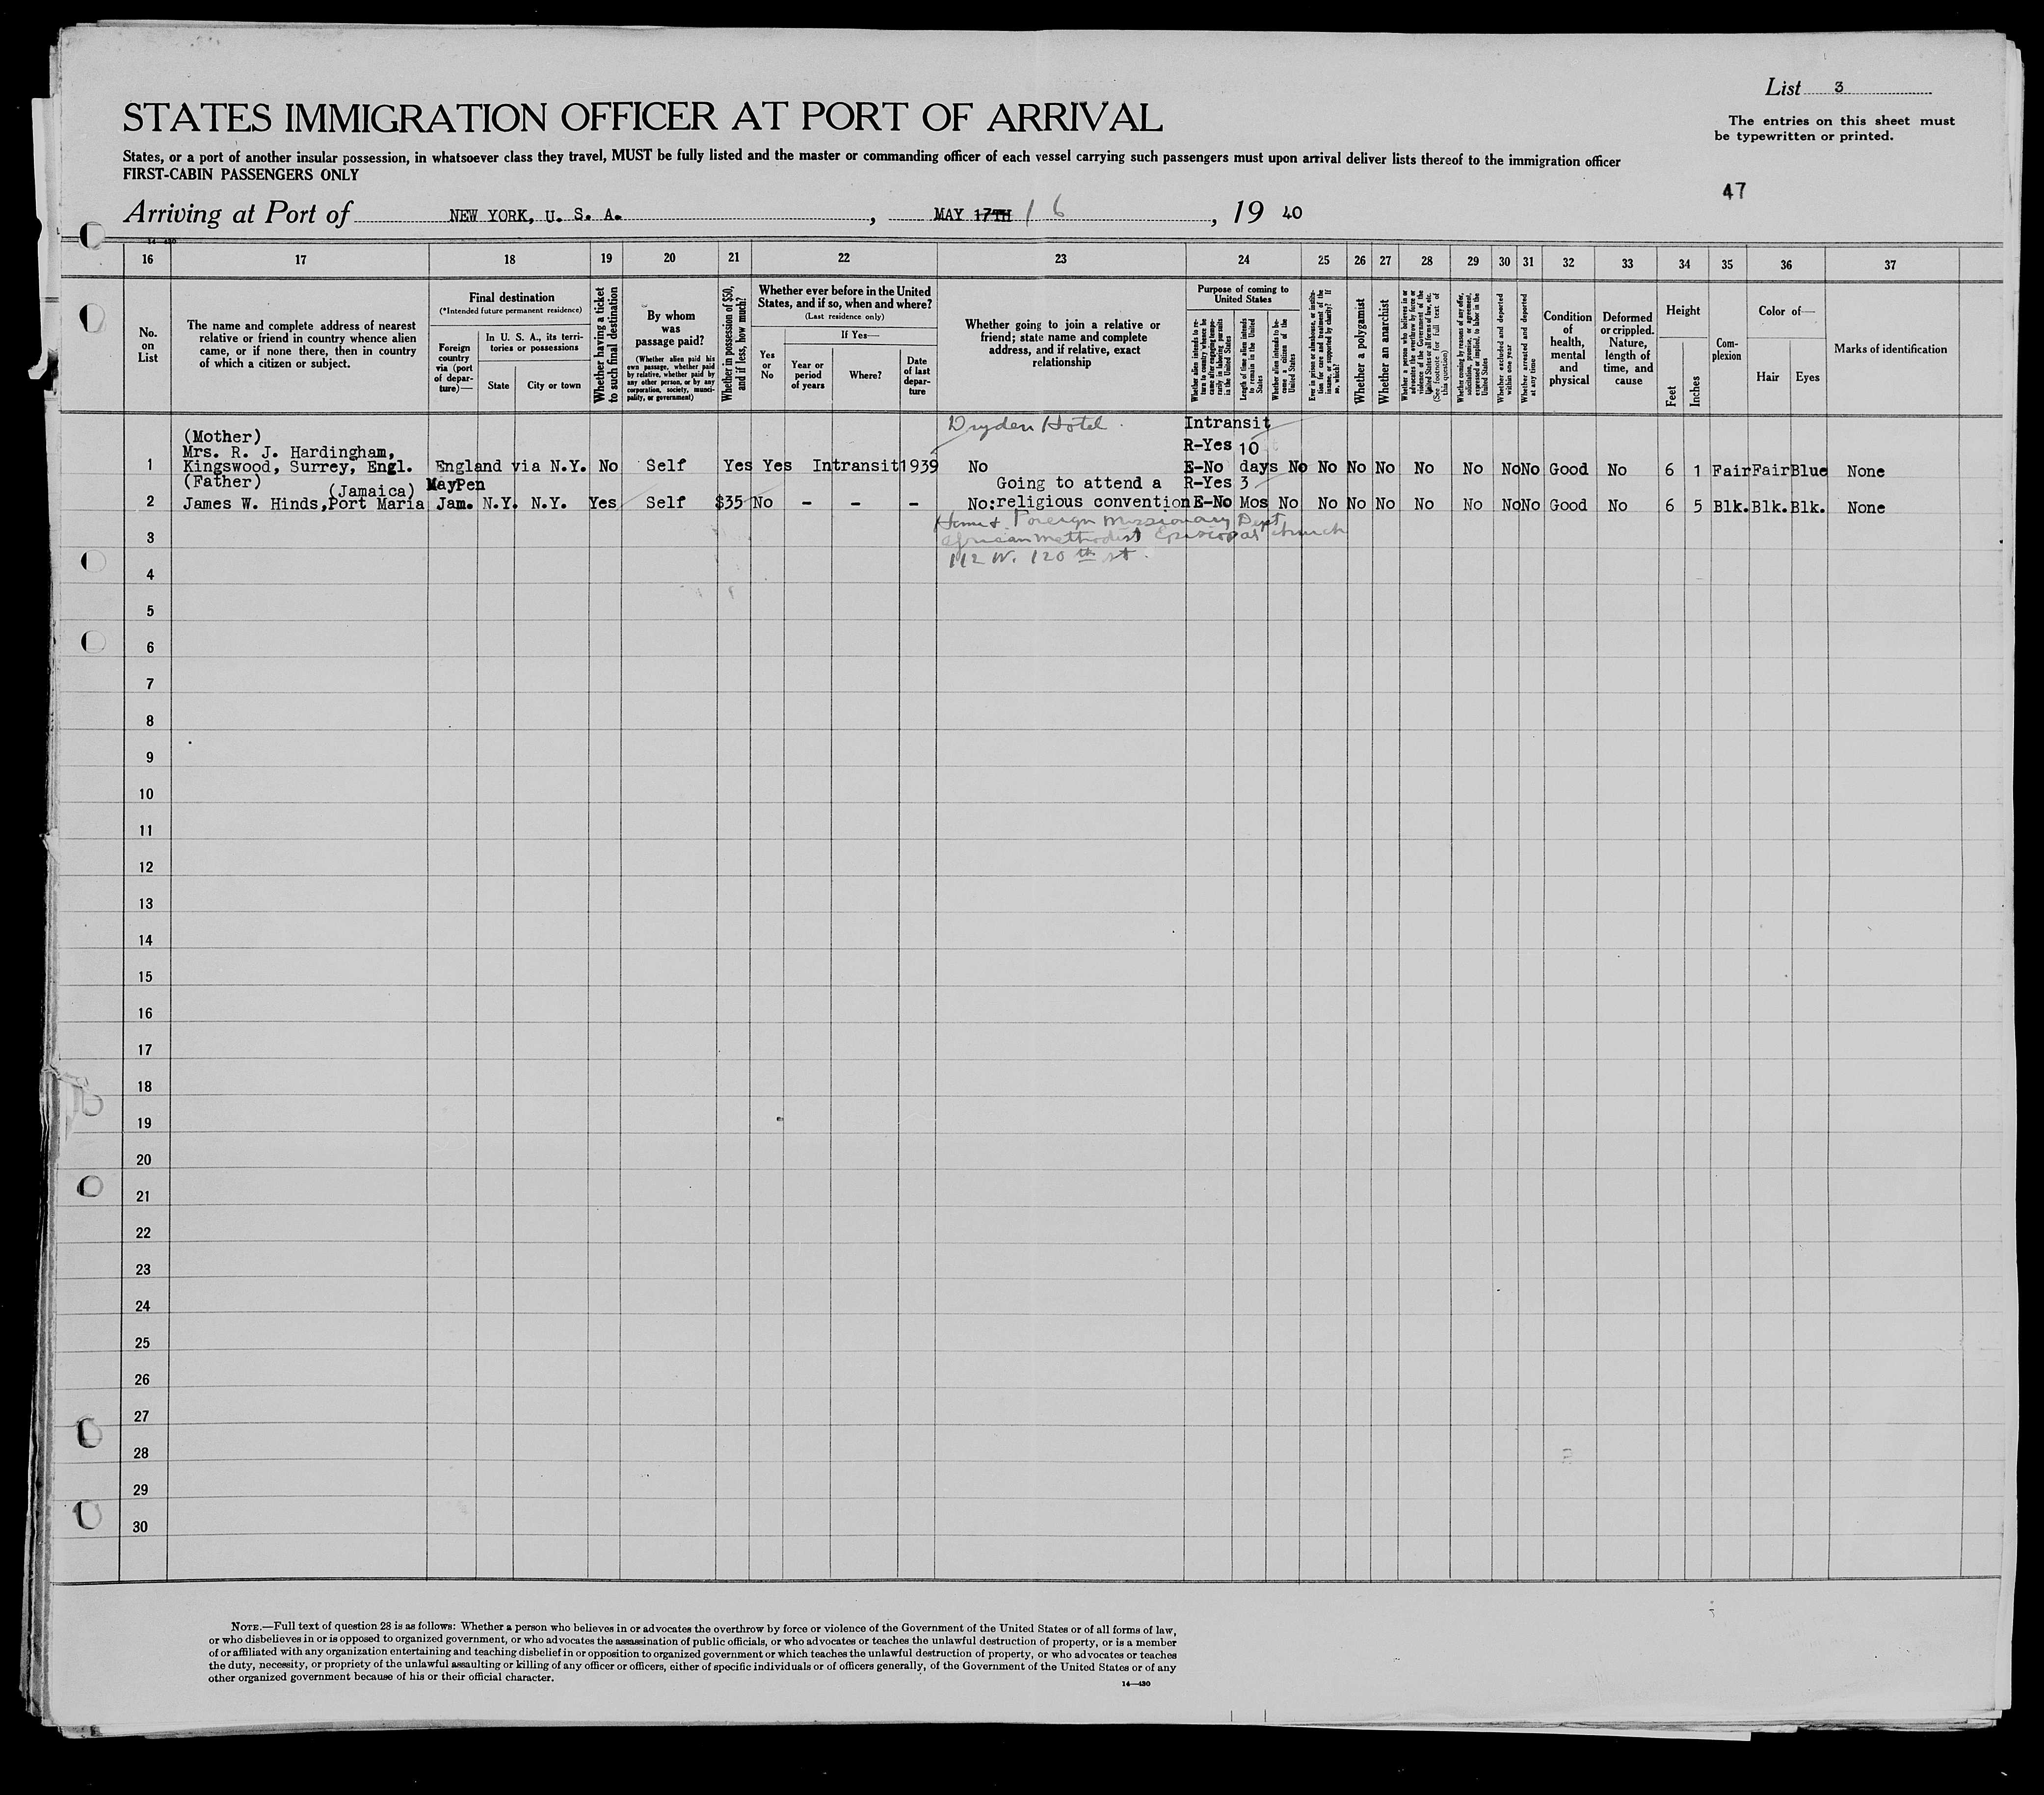 List 3
The entries on this sheet must
be typewritten or printed.
STATES IMMIGRATION OFFICER AT PORT OF ARRIVAL
States, or a port of another insular possession, in whatsoever class they travel, MUST be fully listed and the master or commanding officer of each vessel carrying such passengers must upon arrival deliver lists thereof to the immigration officer
FIRST-CABIN PASSENGERS ONLY
47
Arriving at Port of NEW YORK, U. S. A. , MAY 17TH 16 , 19 40
14—430
16 17 18 19 20 21 22 23 24 25 26 27 28 29 30 31 32 33 34 35 36 37
No.
on
List
The name and complete address of nearest
relative or friend in country whence alien
came, or if none there, then in country
of which a citizen or subject.
Final destination
(*Intended future permanent residence)
Foreign
country
via (port
of depar-
ture)—
In U. S. A., its terri-
tories or possessions
State
City or town
Whether having a ticket
to such final destination
By whom
was
passage paid?
(Whether alien paid his
own passage, whether paid
by relative, whether paid by
any other person, or by any
corporation, society, munici-
pality, or government)
Whether in possession of $50,
and if less, how much?
Whether ever before in the United
States, and if so, when and where?
(Last residence only)
Yes
or
No
If Yes—
Year or
period
of years
Where?
Date
of last
depar-
ture
Whether going to join a relative or
friend; state name and complete
address, and if relative, exact
relationship
Purpose of coming to
United States
Whether alien intends to re-
turn to country whence he
came after engaging tempo-
rarily in laboring pursuits
in the United States
Length of time alien intends
to remain in the United
States
Whether alien intends to be-
come a citizen of the
United States
Ever in prison or almshouse, or institu-
tion for care and treatment of the
insane, or supported by charity? If
so, which?
Whether a polygamist
Whether an anarchist
Whether a person who believes in or
advocates the overthrow by force or
violence of the Government of the
United States or all forms of law, etc.
(See footnote for full text of
this question)
Whether coming by reasons of any offer,
solicitation, promise, or agreement,
expressed or implied, to labor in the
United States
Whether excluded and deported
within one year
Whether arrested and deported
at any time
Condition
of
health,
mental
and
physical
Deformed
or crippled.
Nature,
length of
time, and
cause
Height
Feet
Inches
Com-
plexion
Color of—
Hair
Eyes
Marks of identification
Dryden Hotel. Intransit
(Mother)
Mrs. R. J. Hardingham, R-Yes 10
1 Kingswood, Surrey, Engl. England via N.Y. No Self Yes Yes Intransit 1939 No E-No days No No No No No No No No Good No 6 1 Fair Fair Blue None
(Father) (Jamaica) MayPen Going to attend a R-Yes 3
2 James W. Hinds, Port Maria Jam. N.Y. N.Y. Yes Self $35 No - - - No: religious convention E-No Mos No No No No No No No No Good No 6 5 Blk. Blk. Blk. None
Home & Foreign Missionary Dept
3 African Methodist Episcopal Church
4 112 W. 120th st.
5
6
7
8
9
10
11
12
13
14
15
16
17
18
19
20
21
22
23
24
25
26
27
28
29
30
NOTE.—Full text of question 28 is as follows: Whether a person who believes in or advocates the overthrow by force or violence of the Government of the United States or of all forms of law,
or who disbelieves in or is opposed to organized government, or who advocates the assassination of public officials, or who advocates or teaches the unlawful destruction of property, or is a member
of or affiliated with any organization entertaining and teaching disbelief in or opposition to organized government or which teaches the unlawful destruction of property, or who advocates or teaches
the duty, necessity, or propriety of the unlawful assaulting or killing of any officer or officers, either of specific individuals or of officers generally, of the Government of the United States or of any
other organized government because of his or their official character.
14—430